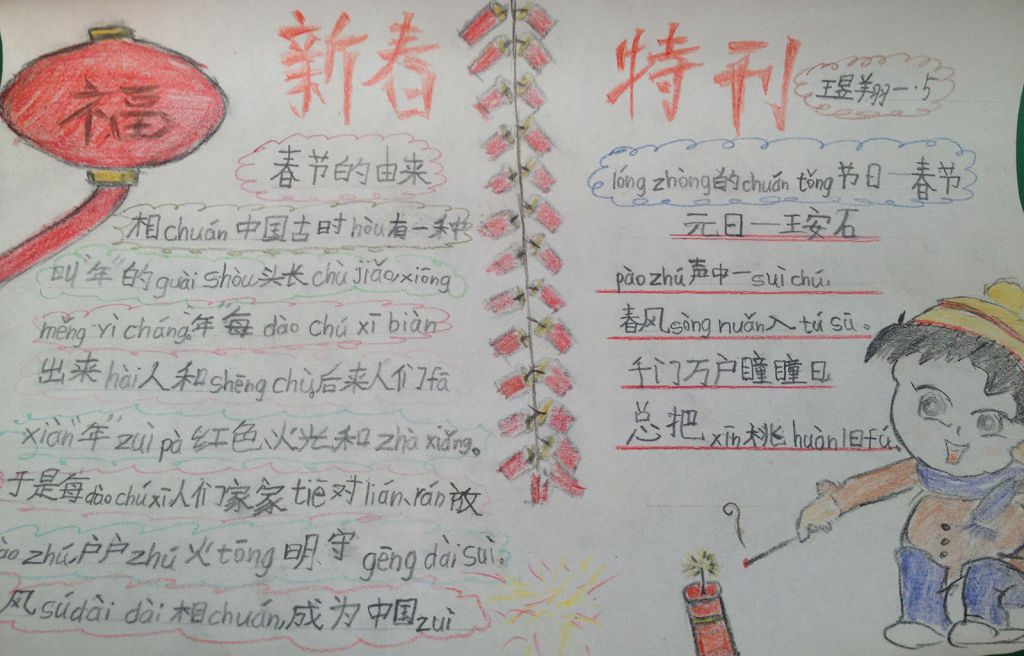 福
新春
特刊
王昱翔一.5
春节的由来
相chuán中国古时hòu有一种
叫“年”的guài shòu头长chù jiǎo xiōng
měng yì cháng。“年”每dào chú xī biàn
出来hài人和shēng chù。后来人们fā
xiàn“年”zuì pà红色、火光和zhà xiǎng。
于是每dào chú xī人们家家tiē对lián、rán放
ào zhú,户户zhú火tōng明、守gēng dài suì。
风sú dài dài相chuán,成为中国zuì
lóng zhòng的chuán tǒng节日——春节
元日——王安石
pào zhú声中一suì chú,
春风sòng nuǎn入tú sū。
千门万户瞳瞳日
总把xīn桃huàn旧fú